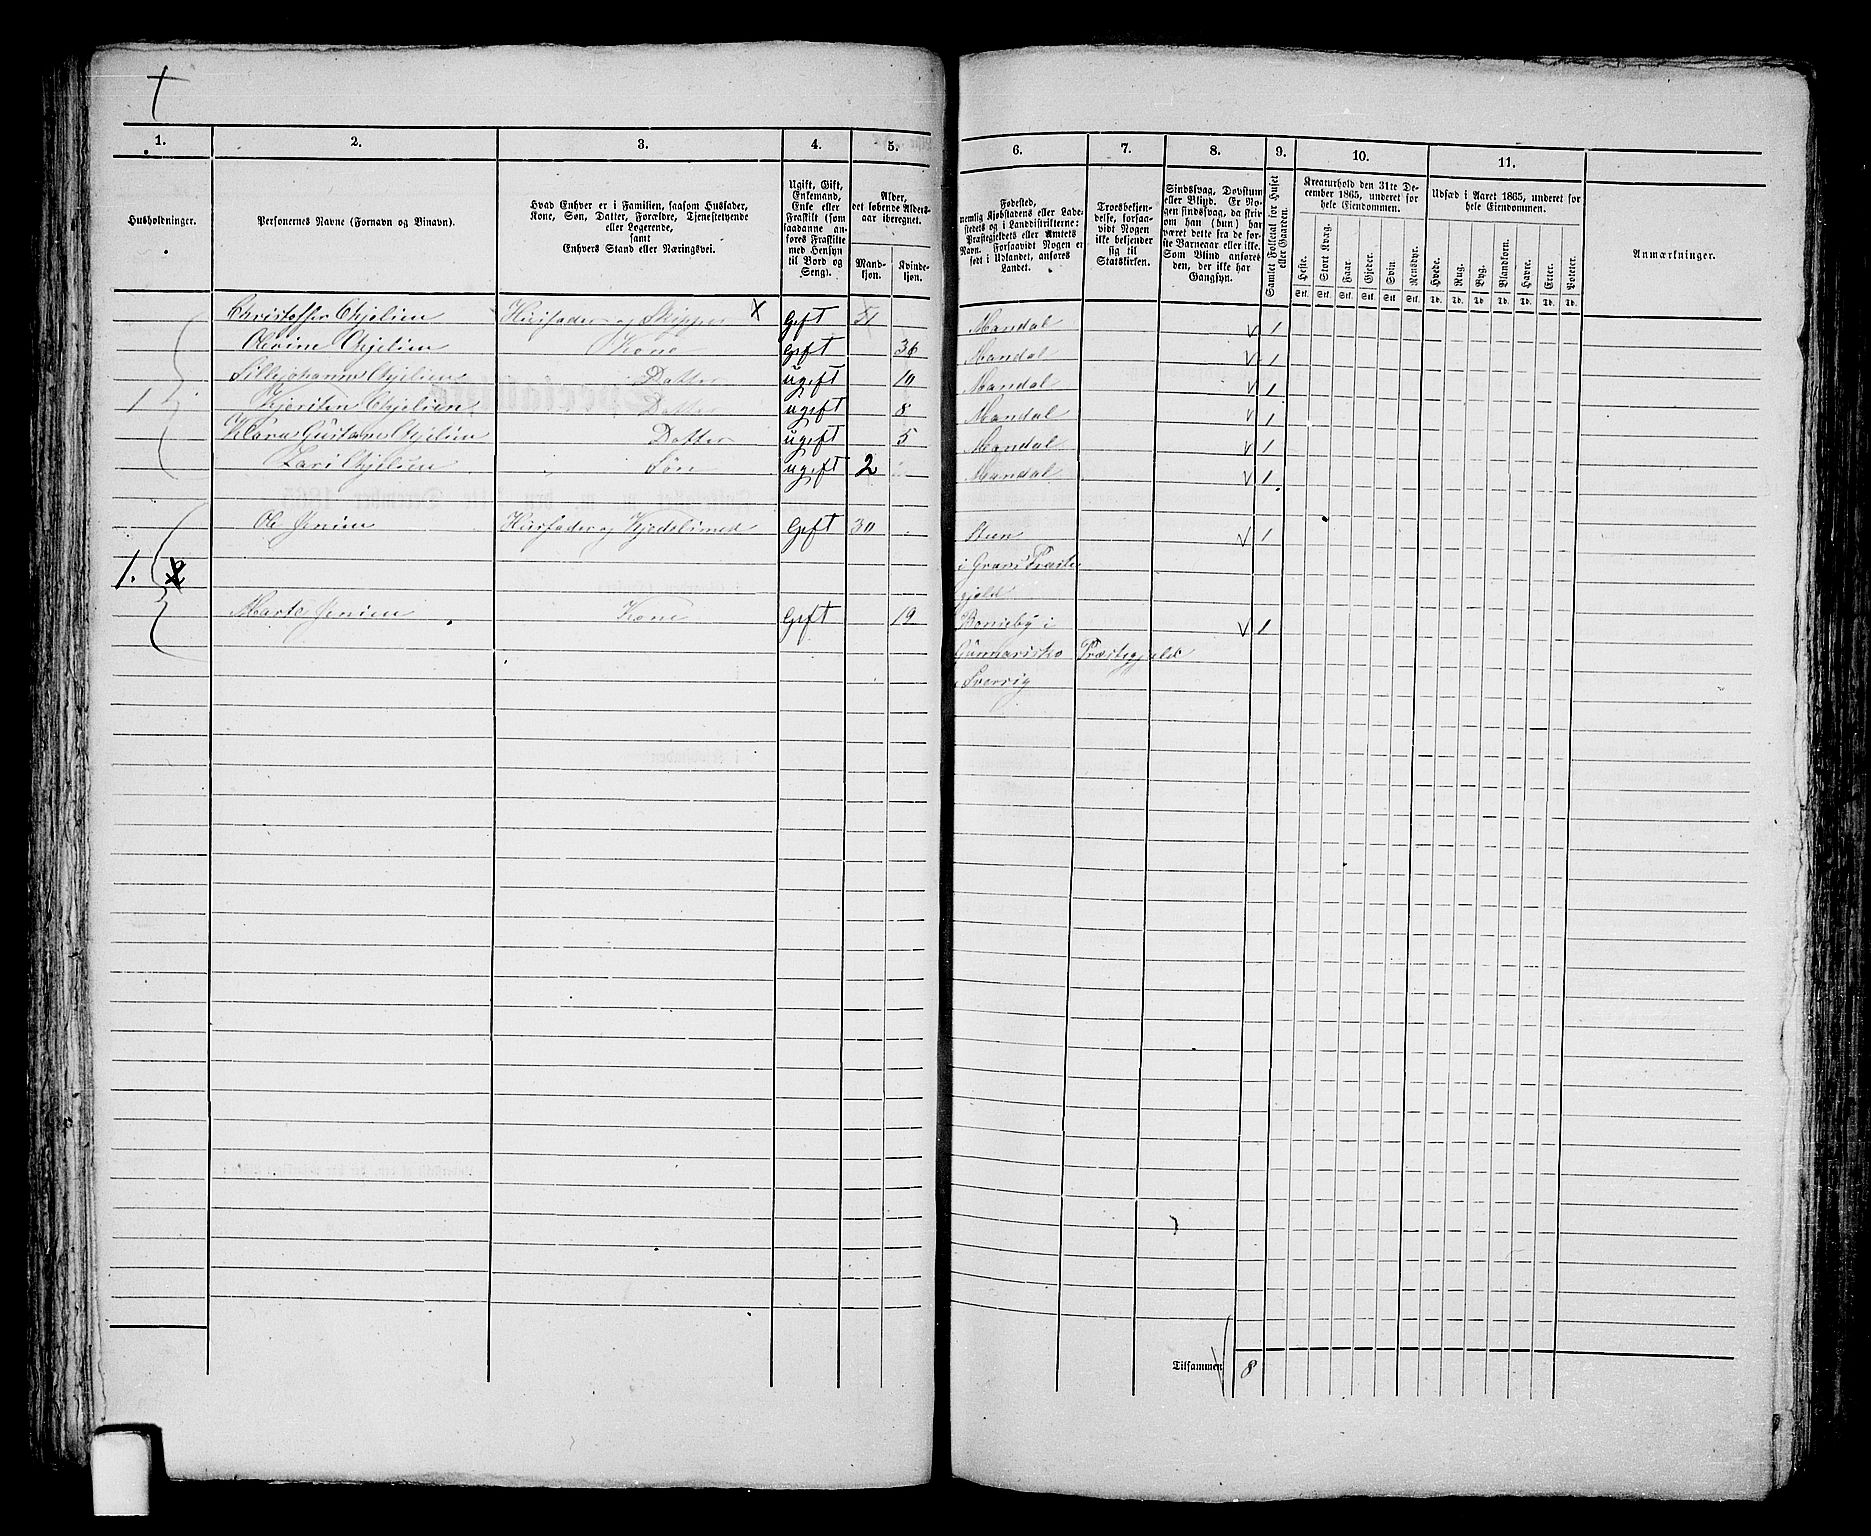 1. 2. 3. 4. 5. 6. 7. 8. 9. 10. 11.
Husholdninger.
Personernes Navne (Fornavn og Binavn).
Hvad Enhver er i Familien, saasom Husfader,
Kone, Søn, Datter, Forældre, Tjenestetyende
eller Logerende,
samt
Enhvers Stand eller Næringsvei.
Ugift, Gift,
Enkemand,
Enke eller
Fraskilt (som
saadanne an-
føres Fraskilte
med Hensyn
til Bord og
Seng).
Alder,
det løbende Alders-
aar iberegnet.
Mand-
kjøn.
Kvinde-
kjøn.
Fødested,
nemlig Kjøbstadens eller Lade-
stedets og i Landdistrikterne:
Præstegjeldets eller Amtets
Navn. Forsaavidt Nogen er
født i Udlandet, anføres
Landet.
Troesbekjen-
delse, forsaa-
vidt Nogen
ikke bekjender
sig til
Statskirken.
Sindssvag, Døvstum
eller Blind. Er No-
gen sindssvag, da skriv
om han (hun) har
været dette fra de før-
ste Barneaar eller ikke.
Som Blind anføres
den, der ikke har
Gangsyn.
Samlet Folketal for Huset
eller Gaarden.
Kreaturhold den 31te De-
cember 1865, underet for
hele Eiendommen.
Heste. Stort Kvæg. Faar. Gjeder. Svin. Rensdyr.
Stk. Stk. Stk. Stk. Stk. Stk.
Udsæd i Aaret 1865, underet for
hele Eiendommen.
Hvede. Rug. Byg. Blandkorn. Havre. Erter. Poteter.
Td. Td. Td. Td. Td. Td. Td.
Anmærkninger.
Christoffer Thjelien Husfader og Skipper X Gift 51 Mandal V 1
Kone Gift 36 Mandal V 1
Datter ugift 10 Mandal V 1
1 Datter ugift 8 Mandal V 1
Klara Datter ugift 5 Mandal V 1
Søn ugift 2 Mandal V 1
Ole Jensen Husfader og Gift 30 Steen V 1
1. 2 i Præste
gjeld
Marte Jensen Kone Gift 19 i V 1
Præstegjeld
i Sverrig
Tilsammen 8